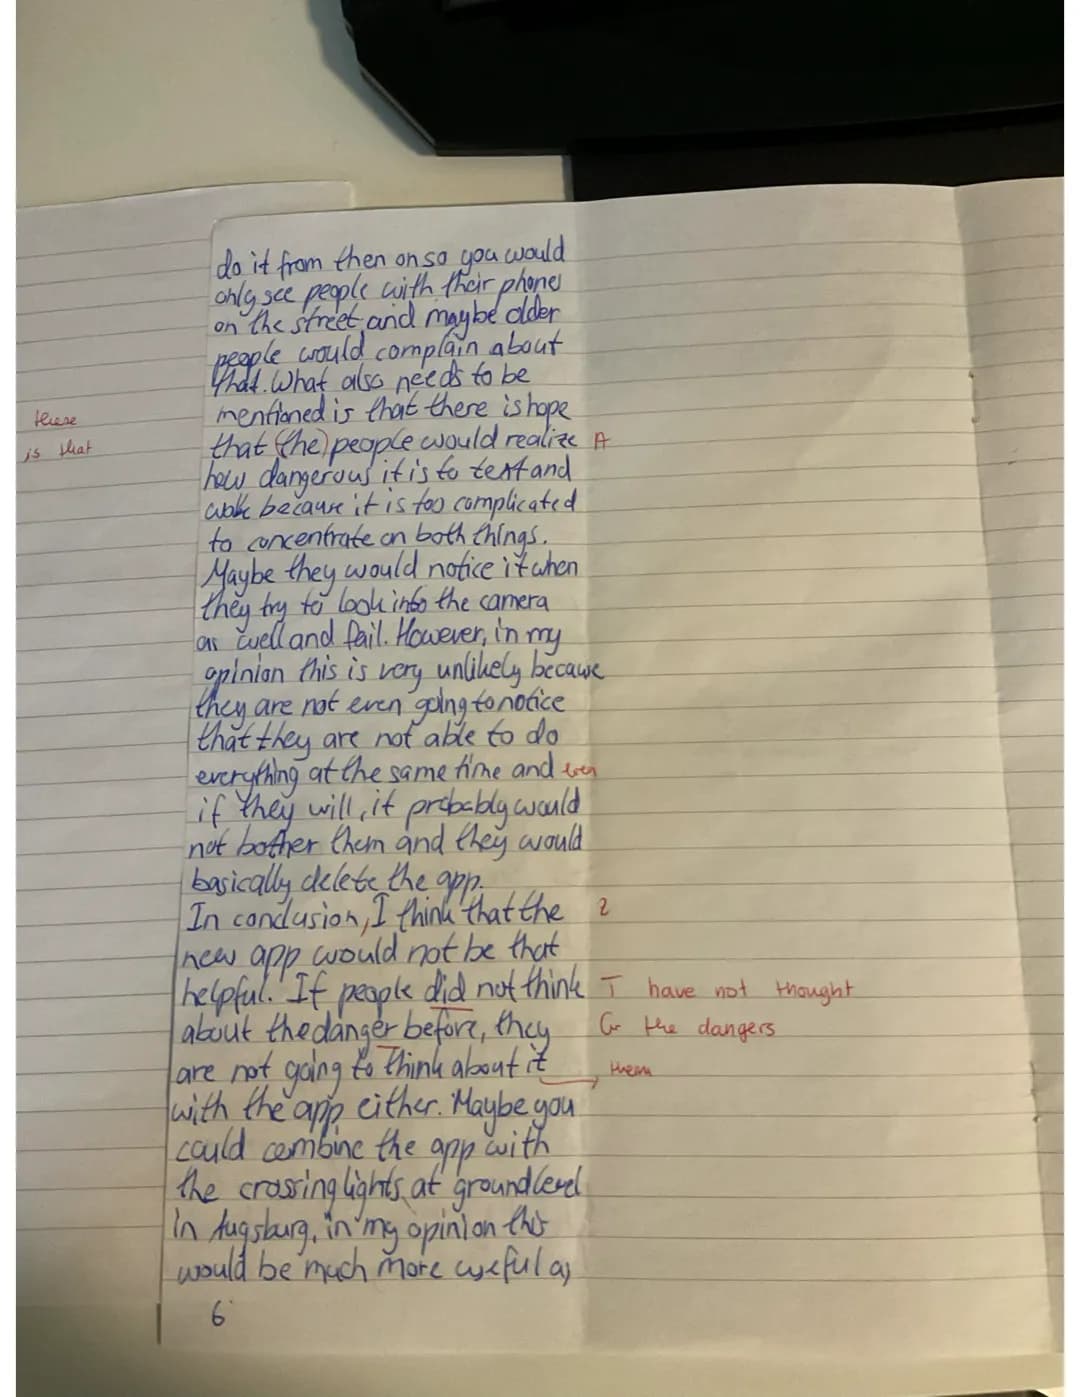 do it from then on so you would
only see people with their phones
on the street and maybe older
people would complain about
that. What also needs to be
mentioned is that there is hope
these
that (the) people would realize A
is that
how dangerous it is to text and
walk because it is too complicated
to concentrate on both things.
Maybe they would notice it when
they try to look into the camera
as well and fail. However, in my
opinion this is very unlikely because
they are not even going to notice
that they are not able to do
everything at the same time and even
if they will, it probably would
not bother them and they would
basically delete the app.
In conclusion, I think that the 2
new app would not be that
helpful. If people did not think T have not thought
about the danger before, they Gr the dangers
are not going to think about it them
with the app either. Maybe you
could combine the app with
the crossing lights at ground level
in Augsburg, in my opinion this
would be much more useful as
6